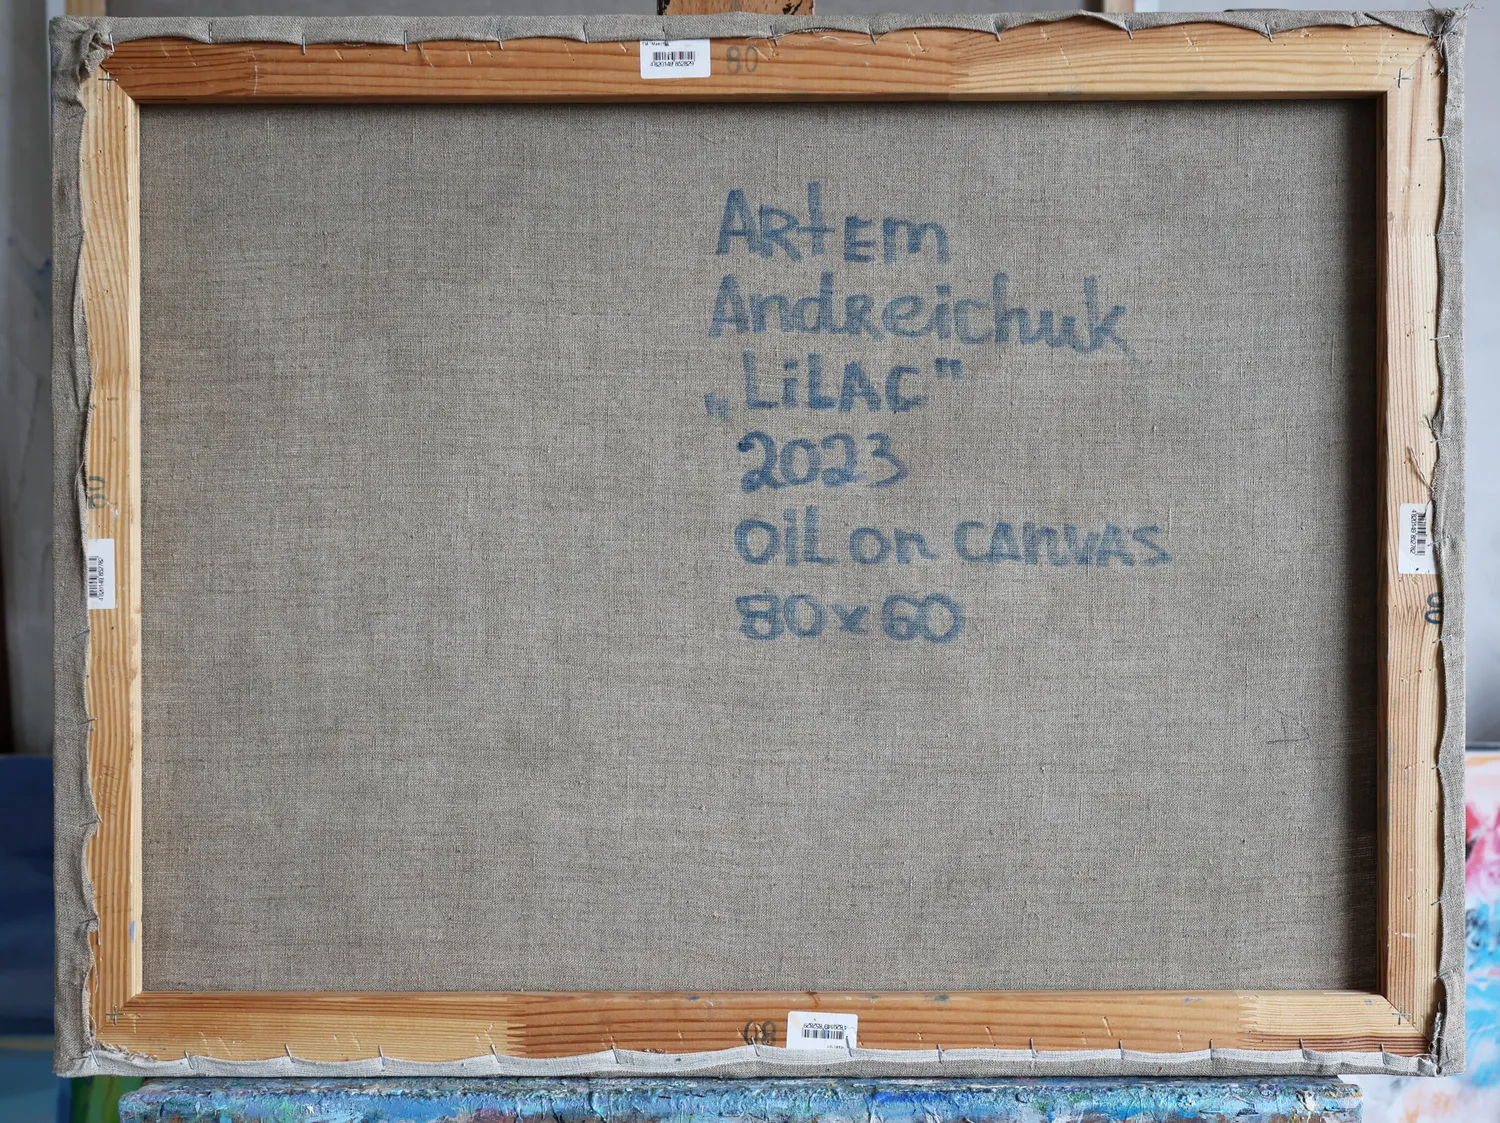 80
Artem
Andreichuk
„LiLAC"
2023
OiL on CANVAS
80x60
60
80